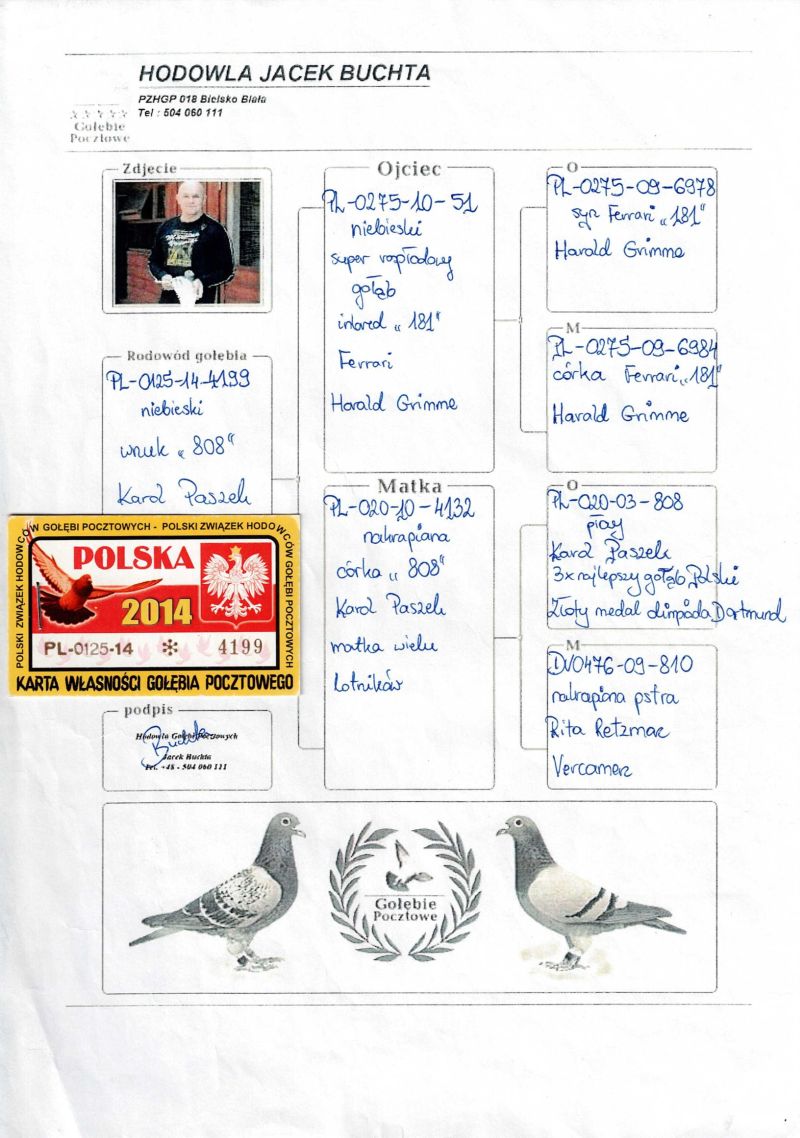 HODOWLA JACEK BUCHTA
PZHGP 018 Bielsko Biała
Tel : 504 060 111
Gołębie
Pocztowe
Zdjecie
Rodowód gołebia
PL-0125-14-4199
niebieski
wnuk „808"
Karol Paszek
POLSKI ZWIĄZEK HODOWCÓW GOŁĘBI POCZTOWYCH - POLSKI ZWIĄZEK HODOWCÓW GOŁĘBI POCZTOWYCH
POLSKA
2014
PL-0125-14 * 4199
KARTA WŁASNOŚCI GOŁĘBIA POCZTOWEGO
podpis
Hodowla Gołębi Pocztowych
Buchta
Jacek Buchta
Tel. +48 - 504 060 111
Ojciec
PL-0275-10-51
niebieski
super rozpłodowy
gołąb
inbred „181"
Ferrari
Harald Grimme
Matka
PL-020-10-4132
nakrapiana
córka „808"
Karol Paszek
matka wielu
lotników
O
PL-0275-09-6978
syn Ferrari „181"
Harald Grimme
M
PL-0275-09-6984
córka Ferrari „181"
Harald Grimme
O
PL-020-03-808
płowy
Karol Paszek
3x najlepszy gołąb Polski
Złoty medal olimpiada Dortmund
M
DV0476-09-810
nakrapiana pstra
Rita Retzmar
Vercamerz
Gołębie
Pocztowe